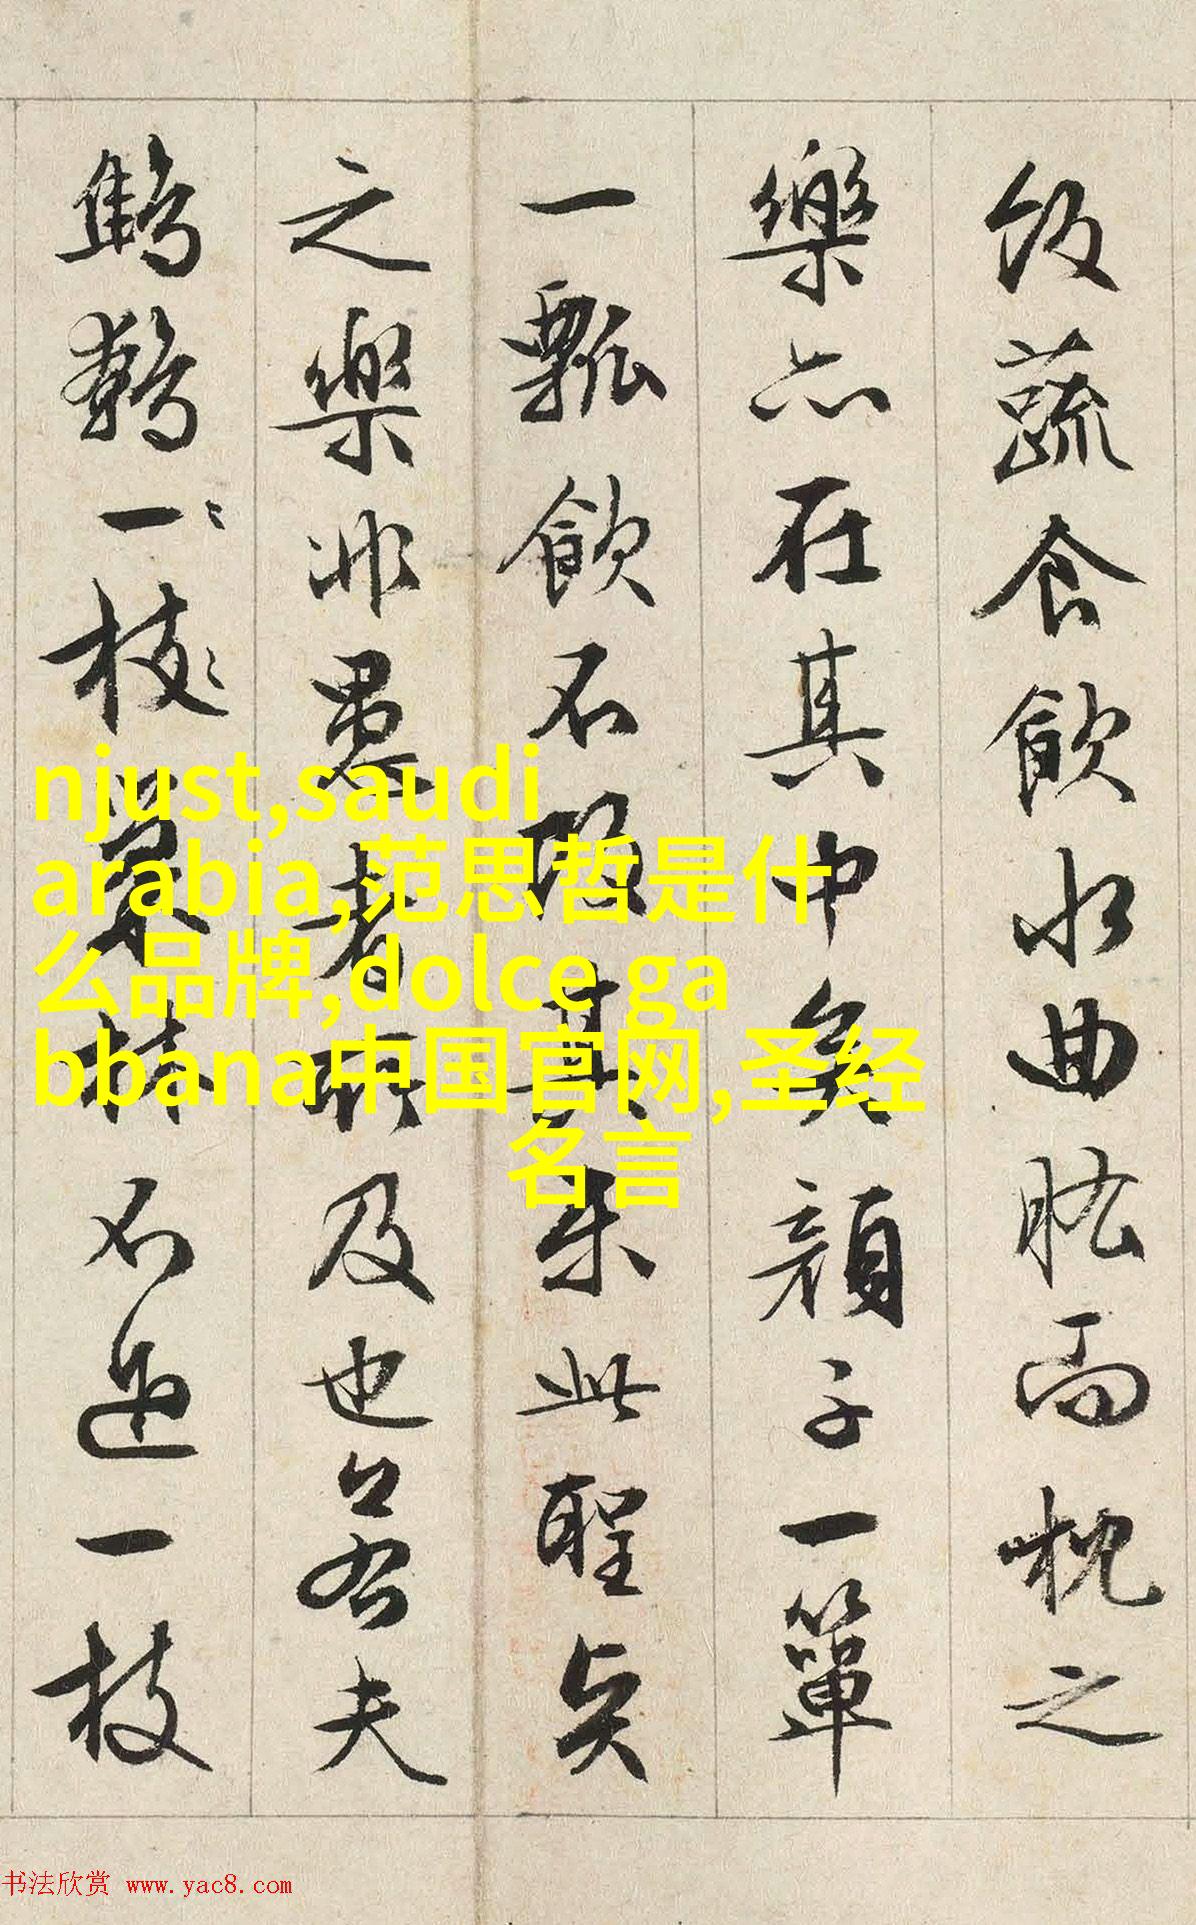 飯蔬食飲水曲肱而枕之
樂亦在其中矣顏子一簞
一瓢飲不改其樂此聖賢
之樂非愚者所及也若夫
鷦鷯一枝巢林不過一枝
njust,saudi
arabia,范思哲是什
么品牌,dolce ga
bbana中国官网,圣经
名言
书法欣赏 www.yac8.com